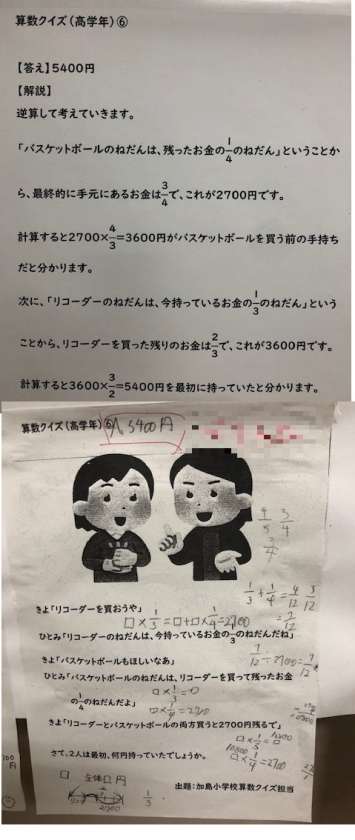 算数クイズ(高学年)⑥
【答え】5400円
【解説】
逆算して考えていきます。
「バスケットボールのねだんは、残ったお金の1/4のねだん」ということか
ら、最終的に手元にあるお金は3/4で、これが2700円です。
計算すると2700×4/3=3600円がバスケットボールを買う前の手持ち
だと分かります。
次に、「リコーダーのねだんは、今持っているお金の1/3のねだん」という
ことから、リコーダーを買った残りのお金は2/3で、これが3600円です。
計算すると3600×3/2=5400円を最初に持っていたと分かります。
算数クイズ(高学年)⑥
5400円
きよ「リコーダーを買おうや」
□×1/3=□+□×1/4=2700
ひとみ「リコーダーのねだんは、今持っているお金の1/3のねだんだね」
1/3+1/4=4/12 3/12
=7/12
きよ「バスケットボールもほしいなあ」
7/12÷2700=
ひとみ「バスケットボールのねだんは、リコーダーを買って残ったお金
の1/4のねだんだよ」
□×1/3=□
□×1/4=2700
きよ「リコーダーとバスケットボールの両方買うと2700円残るで」
□×1/4=2700
さて、2人は最初、何円持っていたでしょうか。
全体□円
1/3
出題:加島小学校算数クイズ担当